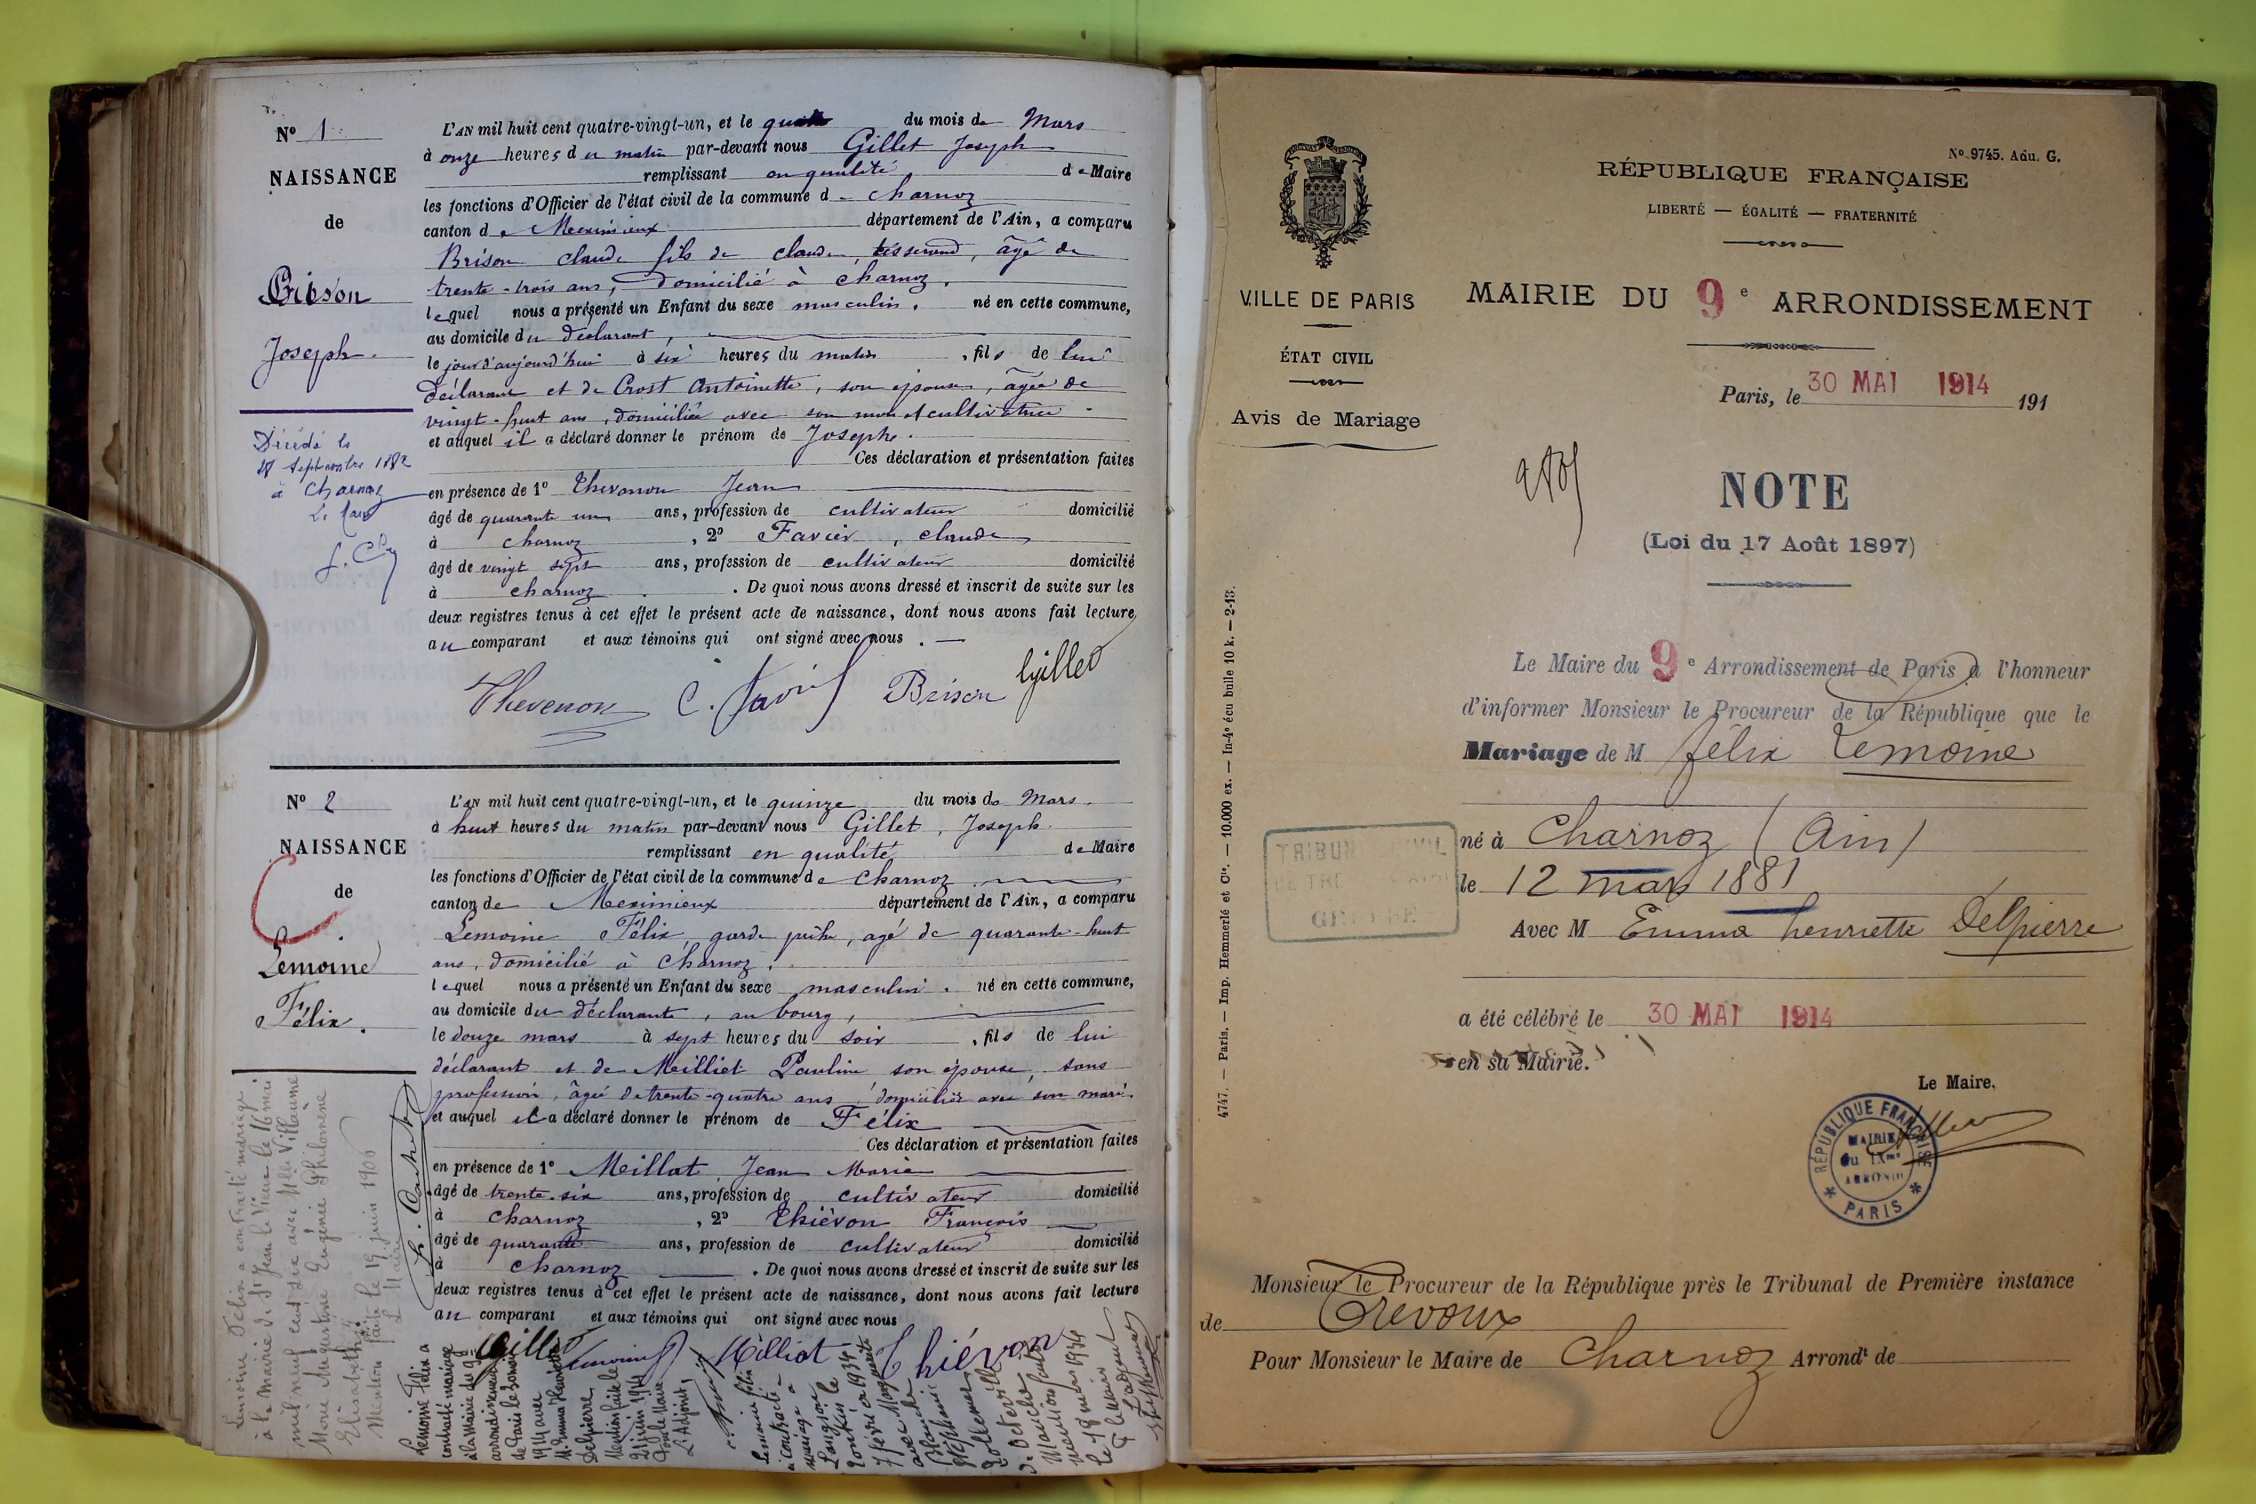 Nº 1
NAISSANCE
de
Brison
Joseph.
Décédé le
à Charnoz
L'AN mil huit cent quatre-vingt-un, et le quatre du mois de Mars
à onze heures du matin par-devant nous Gillet Joseph
remplissant en qualité de Maire
les fonctions d'Officier de l'état civil de la commune de Charnoz
canton de Meximieux département de l'Ain, a comparu
Brison Claude fils de Claude, tisserand, âgé de
trente-trois ans, domicilié à Charnoz.
lequel nous a présenté un Enfant du sexe masculin. né en cette commune,
au domicile du déclarant,
le jour d'aujourd'hui à six heures du matin, fils de lui
déclarant et de Crost Antoinette, son épouse, âgée de
vingt-huit ans, domiciliée avec son mari et cultivatrice
et auquel il a déclaré donner le prénom de Joseph.
Ces déclaration et présentation faites
en présence de 1º Thevenon Jean
âgé de quarante un ans, profession de cultivateur domicilié
à Charnoz, 2º Favier, Claude
âgé de vingt sept ans, profession de cultivateur domicilié
à Charnoz. De quoi nous avons dressé et inscrit de suite sur les
deux registres tenus à cet effet le présent acte de naissance, dont nous avons fait lecture
au comparant et aux témoins qui ont signé avec nous.
Thevenon C. Favier Brison Gillet
Nº 2
NAISSANCE
de
Lemoine
Félix.
L'AN mil huit cent quatre-vingt-un, et le quinze du mois de Mars.
à huit heures du matin par-devant nous Gillet, Joseph
remplissant en qualité de Maire
les fonctions d'Officier de l'état civil de la commune de Charnoz
canton de Meximieux département de l'Ain, a comparu
Lemoine Félix, garde pêche, agé de quarante-huit
ans, domicilié à Charnoz.
lequel nous a présenté un Enfant du sexe masculin. né en cette commune,
au domicile du déclarant, au bourg,
le douze mars à sept heures du soir, fils de lui
déclarant et de Meilliet Pauline son épouse, sans
profession, âgée de trente-quatre ans, domiciliée avec son mari.
et auquel il a déclaré donner le prénom de Félix
Ces déclaration et présentation faites
en présence de 1º Meillat Jean Marie
âgé de trente-six ans, profession de cultivateur domicilié
à Charnoz, 2º Thiévon François
âgé de quarante ans, profession de cultivateur domicilié
à Charnoz. De quoi nous avons dressé et inscrit de suite sur les
deux registres tenus à cet effet le présent acte de naissance, dont nous avons fait lecture
au comparant et aux témoins qui ont signé avec nous
Gillet Lemoine Milliat Thiévon
Lemoine Félix a contracté mariage
à la mairie de St Jean le Vieux le 16 mai
mil neuf cent six avec Mlle Villaume
Marie Augustine Eugénie Philomène
Elisabeth
Mention faite le 19 juin 1906
Le Maire
Lemoine Félix a
contracté mariage
à la Mairie du 9e
arrondissement
de Paris le 30 mai
1914 avec
M. Emma Henriette
Delpierre
Mention faite le
21 juin 1914
Pour le Maire
L'Adjoint,
Lemoine Félix
a contracté
mariage à
7 février 1934
avec
Blanche
Stéphanie
d'Octeville
Manche
mention faite
le 18 mars 1934
P. le maire
L'adjoint
VILLE DE PARIS
ÉTAT CIVIL
Avis de Mariage
Nº 9745. Adu. G.
RÉPUBLIQUE FRANÇAISE
LIBERTÉ — ÉGALITÉ — FRATERNITÉ
MAIRIE DU 9e ARRONDISSEMENT
Paris, le 30 MAI 1914 191
NOTE
(Loi du 17 Août 1897)
Le Maire du 9e Arrondissement de Paris a l'honneur
d'informer Monsieur le Procureur de la République que le
Mariage de M Félix Lemoine
né à Charnoz (Ain)
le 12 mars 1881
Avec M Emma Henriette Delpierre
a été célébré le 30 MAI 1914
en sa Mairie.
Le Maire,
RÉPUBLIQUE FRANÇAISE
MAIRIE
du IXme
ARRONDt
PARIS
TRIBUNAL CIVIL
GREFFE
4747. — Paris. — Imp. Hemmerlé et Cie. — 10.000 ex. — In-4º écu bulle 10 k. — 2-13.
Monsieur le Procureur de la République près le Tribunal de Première instance
de Trévoux
Pour Monsieur le Maire de Charnoz Arrondt de